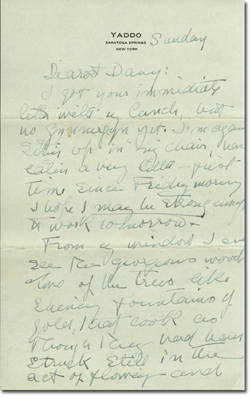 YADDO
SARATOGA SPRINGS
NEW YORK
Sunday
Dearest Dany:
I got your immediate
letter with my lunch, but
no yet. I'm again
sitting up in my chair, have
eaten a very little – first
time since Friday morning
I hope I may be strong enough
to work tomorrow –
From my windows I can
see the gorgeous wood
of the trees like
fountains of
gold, that look as
though they had been
struck still in the
act of flowing and